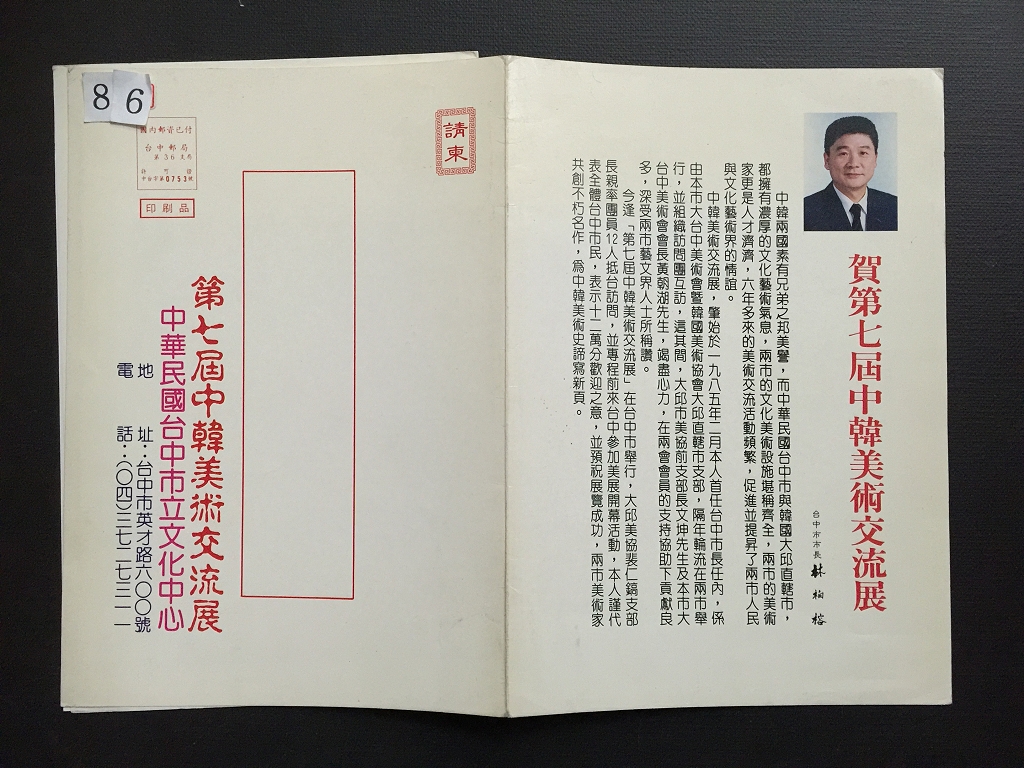 賀第七屆中韓美術交流展
台中市市長 林柏榕
中韓兩國素有兄弟之邦美譽，而中華民國台中市與韓國大邱直轄市，
都擁有濃厚的文化藝術氣息，兩市的文化美術設施堪稱齊全，兩市的美術
家更是人才濟濟，六年多來的美術交流活動頻繁，促進並提昇了兩市人民
與文化藝術界的情誼。
中韓美術交流展，肇始於一九八五年二月本人首任台中市長任內，係
由本市大台中美術會暨韓國美術協會大邱直轄市支部，隔年輪流在兩市舉
行，並組織訪問團互訪，這其間，大邱市美協前支部長文坤先生及本市大
台中美術會會長黃朝湖先生，竭盡心力，在兩會會員的支持協助下貢獻良
多，深受兩市藝文界人士所稱讚。
今逢「第七屆中韓美術交流展」在台中市舉行，大邱美協裴仁鎬支部
長親率團員12人抵台訪問，並專程前來台中參加美展開幕活動，本人謹代
表全體台中市民，表示十二萬分歡迎之意，並預祝展覽成功，兩市美術家
共創不朽名作，為中韓美術史諦寫新頁。
請柬
86
國內郵資已付
台中郵局
第36支局
許可證
中台市第0753號
印刷品
第七屆中韓美術交流展
中華民國台中市立文化中心
地址：台中市英才路六〇〇號
電話：（〇四）三七二七三一一